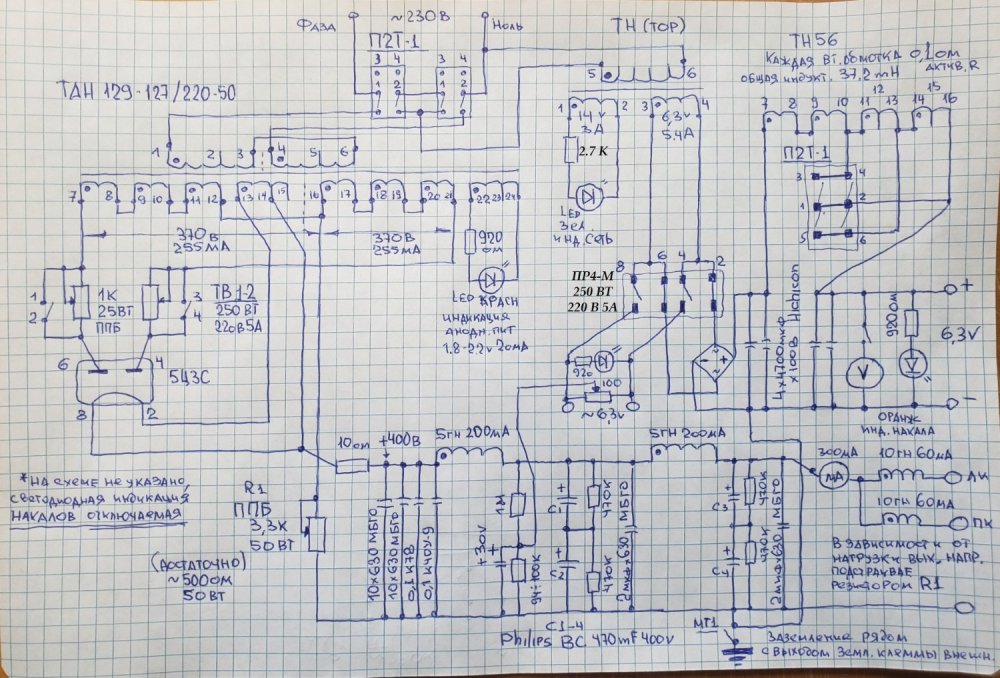 Фаза
~230В
Ноль
П2Т-1
3 4 3 4
1 2 1 2
ТАН 129-127/220-50
ТН (ТОР)
5 6
ТН56
Каждая вт. обмотка 0,1 ом
актив. R
общая индукт. 37,2 mH
12 15
7 8 9 10 11 13 14 16
1 2 3 4 5 6
1 2 3 4
14 v
3А
6,3v
5.4А
2.7 К
П2Т-1
3 4
1 2
5 6
7 8 9 10 11 12 13 14 15 16 17 18 19 20 21 22 23 24
LED
Зел.
инд. сеть
370В
255мА
370В
255мА
920
ом
1
2
1К
25Вт
ППБ
3
4
ТВ1-2
250 Вт
220В 5А
LED Красн
индикация
анодн. пит
1.8-2.2v 20mA
ПР4-М
250 ВТ
220 В 5А
8 6 4 2
920
100
~6,3v
4 x 4700 мкф
x 100В Hichicon
920ом
+
6,3V
–
V
Оранж
инд. накала
6 4
5Ц3С
8 2
*На схеме не указано,
светодиодная индикация
накалов отключаемая
R1
ППБ
3,3К
50Вт
(достаточно)
~500ом
50Вт
10ом
+400В
5ГН 200мА
5ГН 200мА
300мА
mA
10ГН 60мА
ЛК
10ГН 60мА
ПК
10x630 МБГО
10x630 МБГО
0,1 К78
0,1 К40У-9
1М
+30V
94÷100К
C1
C2
470К
470К
2мкфx630 МБГО
C3
C4
470К
470К
2мкфx630 МБГО
В зависимости от
нагрузки вых. напр.
подстраивае
резистором R1
С1-4
Philips BC 470mF 400v
МТ1
Заземление рядом
с выходом земл. клеммы внешн.